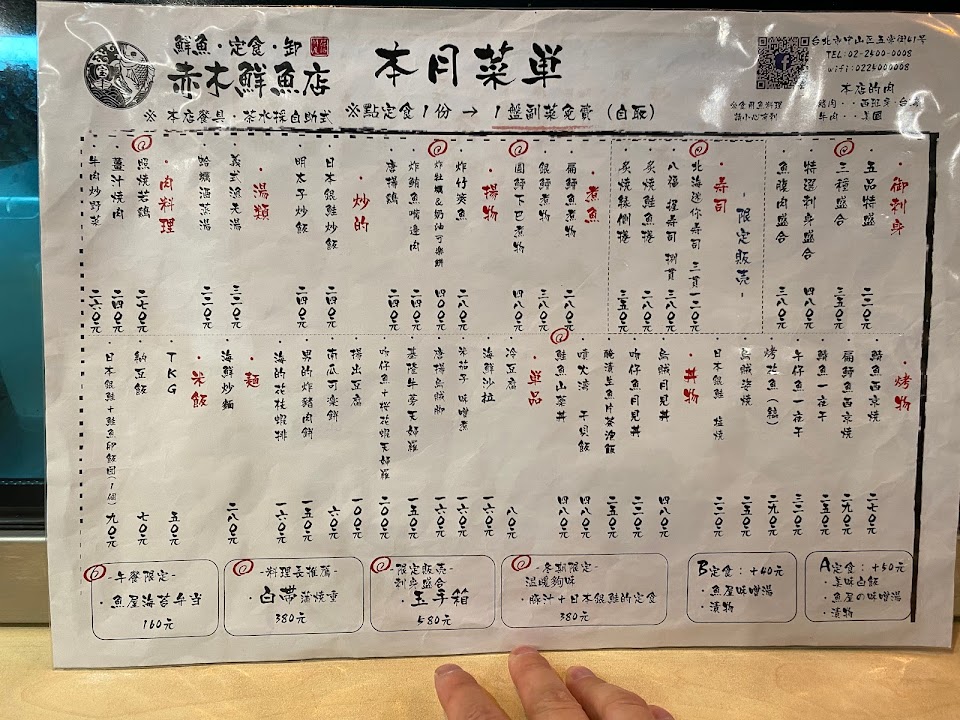 鮮魚・定食・卸
赤木鮮魚店
本月菜単
※ 本店餐具・茶水採自助式
※點定食1份 → 1盤副菜免費 (自取)
台北市中山区五常街41号
TEL:02-2500-0008
wifi:0225000008
本店的肉
豬肉・・西班牙・台湾
牛肉・・美國
公告
・御刺身
五品特盛 二二〇元
三種盛合 三五〇元
特選刺身盛合 四八〇元
魚腹肉盛合 三八〇元
-限定販売-
・寿司
北海道迷你寿司 三貫一二〇元
八福 握寿司 捌貫 三八〇元
炙燒鮭魚捲 二八〇元
炙燒鰭側捲 三五〇元
・煮魚
扁鱈魚煮物 二八〇元
銀鱈煮物 三八〇元
圓鱈下巴煮物 四八〇元
・揚物
炸竹筴魚 二八〇元
炸牡蠣&奶油可樂餅 四〇〇元
炸鮪魚嘴邊肉 二四〇元
唐揚鶏 二四〇元
・炒的
日本銀鮭炒飯 二四〇元
明太子炒飯 二四〇元
・湯類
義式漁夫湯 三二〇元
蛤蠣酒蒸湯 二二〇元
・肉料理
照燒若鶏 二七〇元
薑汁燒肉 二四〇元
牛肉炒野菜 二六〇元
・烤物
鯖魚西京燒 二七〇元
扁鱈魚西京燒 二九〇元
鯖魚一夜干 二五〇元
午仔魚一夜干 三三〇元
烤花魚(鹽) 二九〇元
烏賊姿燒 二〇〇元
日本銀鮭 塩燒 二二〇元
・丼物
烏賊月見丼 四八〇元
吻仔魚月見丼 二二〇元
醃漬生魚片茶漬飯 二五〇元
噴火湾 干貝飯 四八〇元
鮭魚山藥丼 四八〇元
・単品
冷豆腐 八〇元
海鮮沙拉 一六〇元
茶茄子 味噌煮 一六〇元
唐揚烏賊腳 一六〇元
基隆牛蒡天婦羅 一五〇元
吻仔魚+桜花蝦天婦羅 二〇〇元
揚出豆腐 一〇〇元
南瓜可樂餅 六〇元
男的炸豬肉餅 一五〇元
海的花枝蝦排 一六〇元
・麺
海鮮炒麵 二八〇元
・米飯
TKG 五〇元
納豆飯 七〇元
日本銀鮭+鮭魚卵飯囙(1個) 九〇元
-午餐限定-
・魚屋海苔弁当
160元
-料理長推薦-
・白帶蒲燒重
380元
-限定販売-
刺身盛合
・玉手箱
580元
-冬期限定-
温暖夠味
・豚汁+日本銀鮭的定食
380元
B定食：+40元
・魚屋味噌湯
・漬物
A定食：+50元
・美味白飯
・魚屋の味噌湯
・漬物